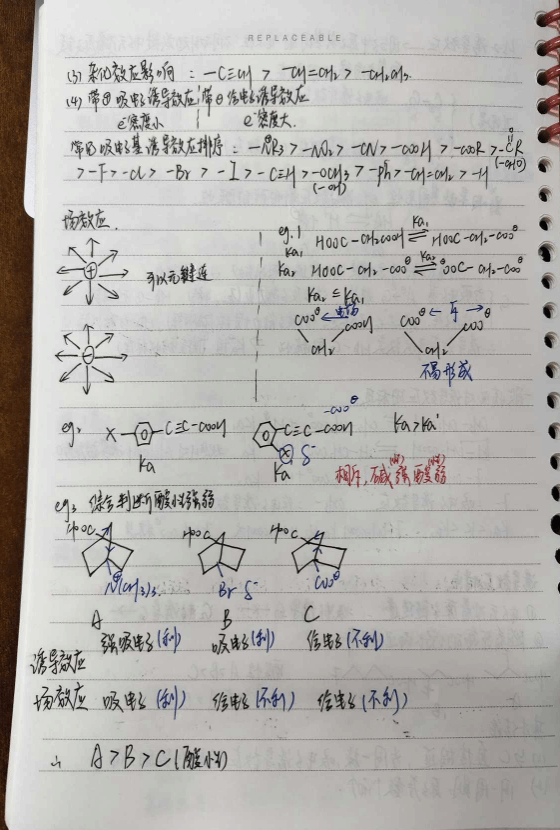 REPLACEABLE
(3) 杂化效应影响: —C≡CH > —CH=CH₂ > —CH₂CH₃
(4) 带⊕ 吸电子诱导效应, 带⊖ 给电子诱导效应
e⁻密度小 e⁻密度大.
常见吸电子基诱导效应排序: —N⊕R₃ > —NO₂ > —CN > —COOH > —COOR > —CR
O
(—CHO)
> —F > —Cl > —Br > —I > —C≡CH > —OCH₃ > —Ph > —CH=CH₂ > —H
(—OH)
场效应
+
可以无键连
−
eg.1 HOOC—CH₂COOH ⇌ HOOC—CH₂—COO⊖
Ka₁
Ka₁
Ka₂ HOOC—CH₂—COO⊖ ⇌ ⊖OOC—CH₂—COO⊖
Ka₂
Ka₂ ≤ Ka₁
COO⊖ COOH
CH₂
COO⊖ ← 斥 → COO⊖
CH₂
不易形成
eg₂ X— —C≡C—COOH
Ka
—C≡C—COOH
—COO⊖
X δ⁻
Ka'
Ka > Ka'
相斥, 碱强酸弱
eg₃ 综合判断酸性强弱
HOOC HOOC HOOC
N(CH₃)₃ Br δ⁻ COO⊖
A B C
诱导效应 强吸电子(利) 吸电子(利) 给电子(不利)
场效应 吸电子(利) 给电子(不利) 给电子(不利)
∴ A > B > C (酸性)